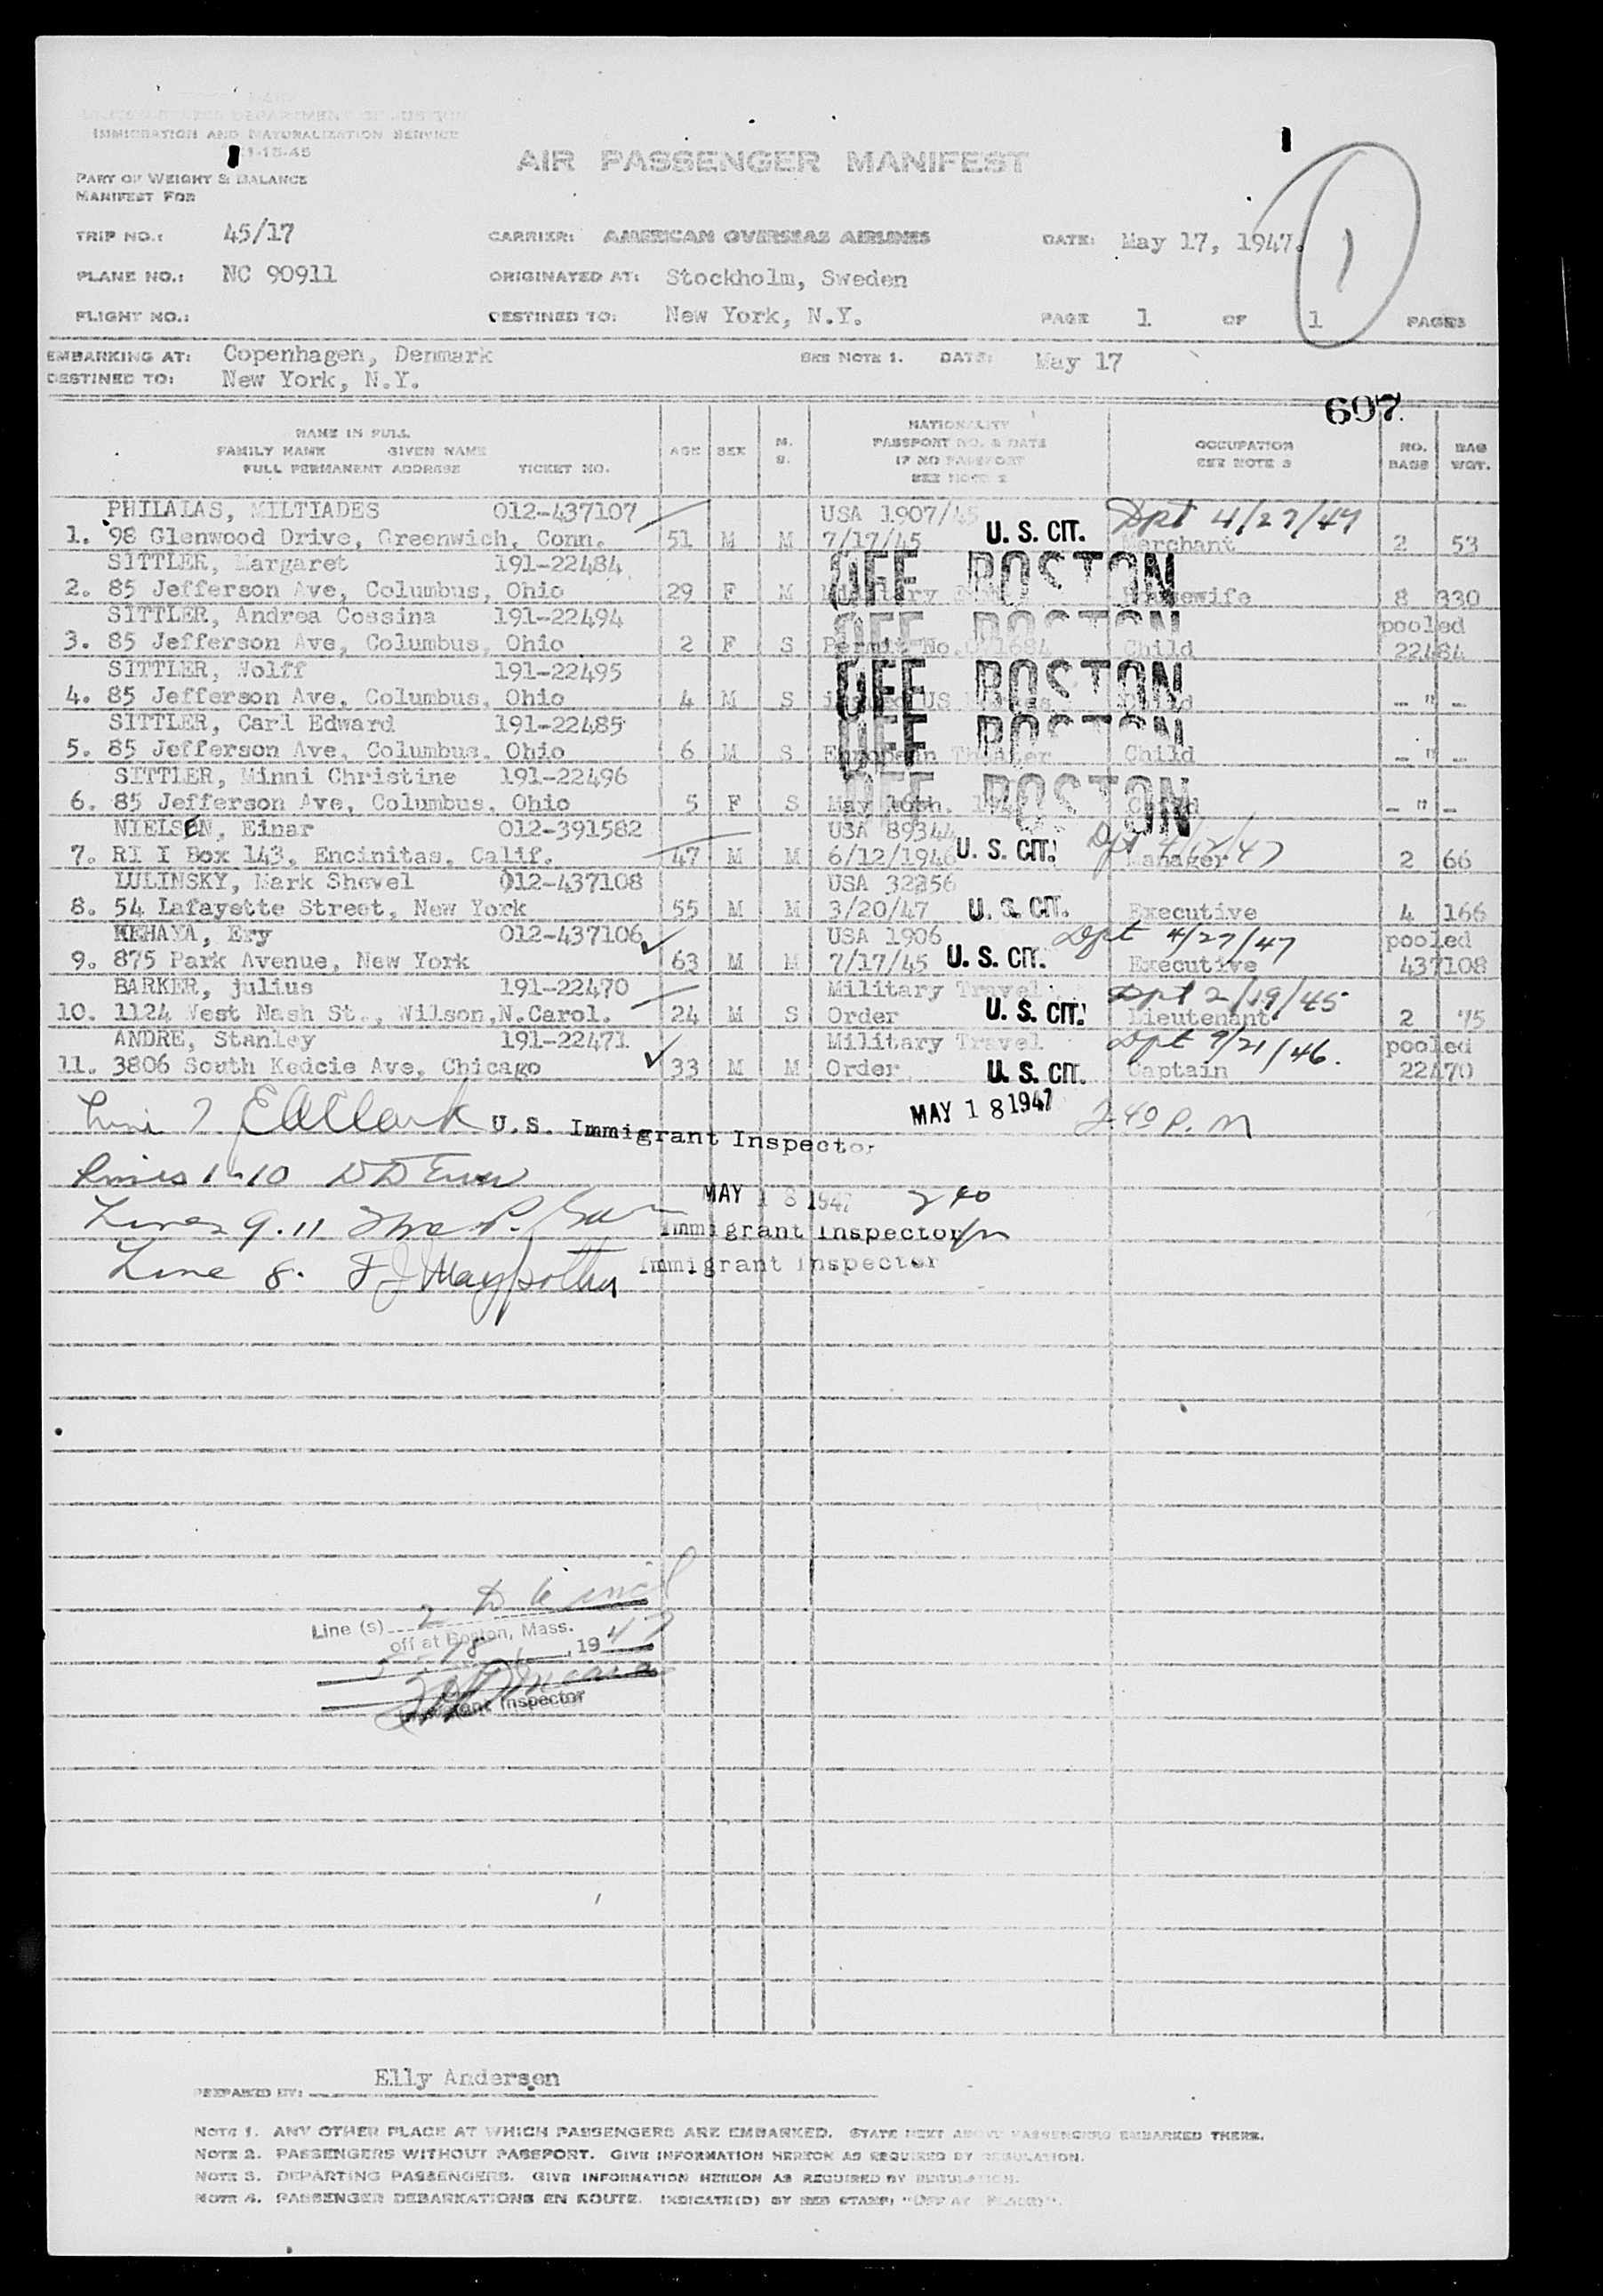 IMMIGRATION AND NATURALIZATION SERVICE
PART OF WEIGHT & BALANCE
MANIFEST FOR
AIR PASSENGER MANIFEST
TRIP NO.: 45/17 CARRIER: AMERICAN OVERSEAS AIRLINES DATE: May 17, 1947.
PLANE NO.: NC 90911 ORIGINATED AT: Stockholm, Sweden
FLIGHT NO.: DESTINED TO: New York, N.Y. PAGE 1 OF 1 PAGES
1
EMBARKING AT: Copenhagen, Denmark SEE NOTE 1. DATE: May 17
DESTINED TO: New York, N.Y.
607.
NAME IN FULL
FAMILY NAME GIVEN NAME
FULL PERMANENT ADDRESS TICKET NO.
AGE SEX M. S.
NATIONALITY
PASSPORT NO. & DATE
IF NO PASSPORT
SEE NOTE 2
OCCUPATION
SEE NOTE 3
NO. BAGS BAG WGT.
PHILALAS, MILTIADES 012-437107 USA 1907/45 Dpt 4/27/47
1. 98 Glenwood Drive, Greenwich, Conn. 51 M M 7/17/45 U. S. CIT. Merchant 2 53
SITTLER, Margaret 191-22484 OFF BOSTON
2. 85 Jefferson Ave, Columbus, Ohio 29 F M Military Housewife 8 330
SITTLER, Andrea Cossina 191-22494 OFF BOSTON pooled
3. 85 Jefferson Ave, Columbus, Ohio 2 F S Permit No. Child 22484
SITTLER, Wolff 191-22495 OFF BOSTON
4. 85 Jefferson Ave, Columbus, Ohio 4 M S US Child - " -
SITTLER, Carl Edward 191-22485 OFF BOSTON
5. 85 Jefferson Ave, Columbus, Ohio 6 M S European Theater Child - " -
SITTLER, Minni Christine 191-22496 OFF BOSTON
6. 85 Jefferson Ave, Columbus, Ohio 5 F S May 16th, Child - " -
NIELSEN, Einar 012-391582 USA 89344 Dpt 4/12/47
7. RI I Box 143, Encinitas, Calif. 47 M M 6/12/1946 U. S. CIT. Manager 2 66
LULINSKY, Mark Shevel 012-437108 USA 32356
8. 54 Lafayette Street, New York 55 M M 3/20/47 U. S. CIT. Executive 4 166
KEHAYA, Ery 012-437106 USA 1906 Dpt 4/27/47 pooled
9. 875 Park Avenue, New York 63 M M 7/17/45 U. S. CIT. Executive 437108
BARKER, julius 191-22470 Military Travel Dpt 2/19/45
10. 1124 West Nash St., Wilson, N.Carol. 24 M S Order U. S. CIT. Lieutenant 2 75
ANDRE, Stanley 191-22471 Military Travel Dpt 9/21/46. pooled
11. 3806 South Kedcie Ave, Chicago 33 M M Order U. S. CIT. Captain 22470
Line 7 E A Clark U.S. Immigrant Inspector MAY 18 1947 2.40 P. M
Lines 1-10
MAY 18 1947 2 40
Lines 9.11 Immigrant Inspector
Line 8. Immigrant Inspector
Line (s) 2 to 6 incl
off at Boston, Mass.
5-18, 1947
Immigrant Inspector
PREPARED BY: Elly Anderson
NOTE 1. ANY OTHER PLACE AT WHICH PASSENGERS ARE EMBARKED. STATE NEXT ABOVE PASSENGERS EMBARKED THERE.
NOTE 2. PASSENGERS WITHOUT PASSPORT. GIVE INFORMATION HEREON AS REQUIRED BY REGULATION.
NOTE 3. DEPARTING PASSENGERS. GIVE INFORMATION HEREON AS REQUIRED BY REGULATION.
NOTE 4. PASSENGER DEBARKATIONS EN ROUTE. INDICATE(D) BY RED STAMP, "OFF AT (PLACE)".